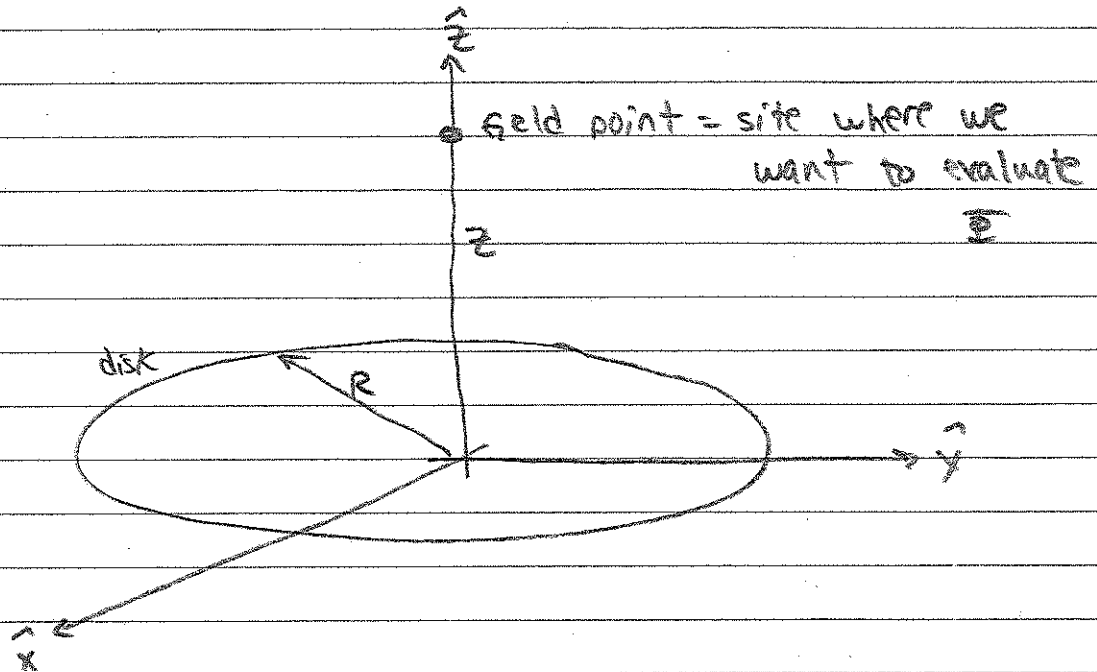 ẑ
field point = site where we
want to evaluate
Φ
z
disk
R
ŷ
x̂